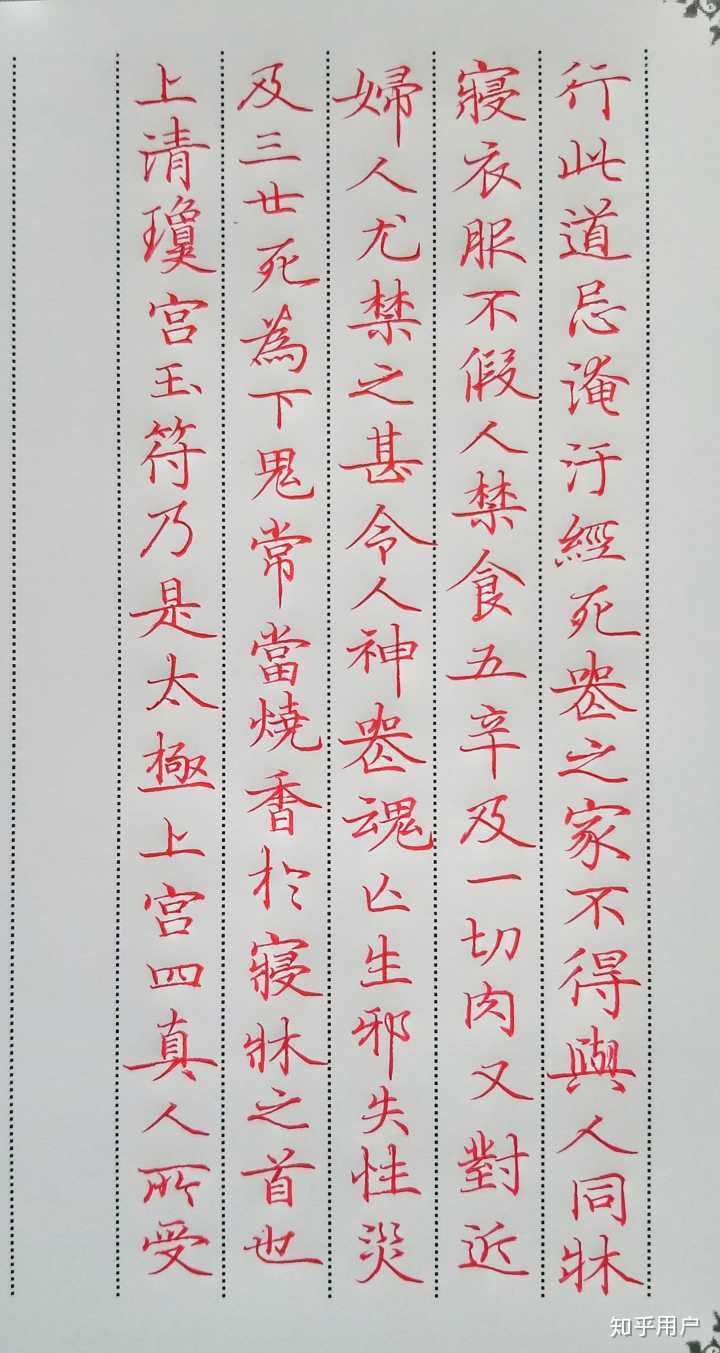 行此道忌淹汙經死喪之家不得與人同牀
寢衣服不假人禁食五辛及一切肉又對近
婦人尤禁之甚令人神喪魂亡生邪失性災
及三世死為下鬼常當燒香於寢牀之首也
上清瓊宮玉符乃是太極上宮四真人所受
知乎用户